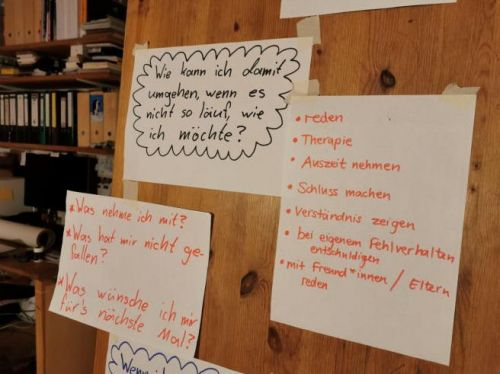 Wie kann ich damit
umgehen, wenn es
nicht so läuf, wie
ich möchte?
• reden
• Therapie
• Auszeit nehmen
• Schluss machen
• Verständnis zeigen
• bei eigenem Fehlverhalten
entschuldigen
• mit Freund*innen / Eltern
reden
* Was nehme ich mit?
* Was hat mir nicht ge-
fallen?
* Was wünsche ich mir
für's nächste Mal?